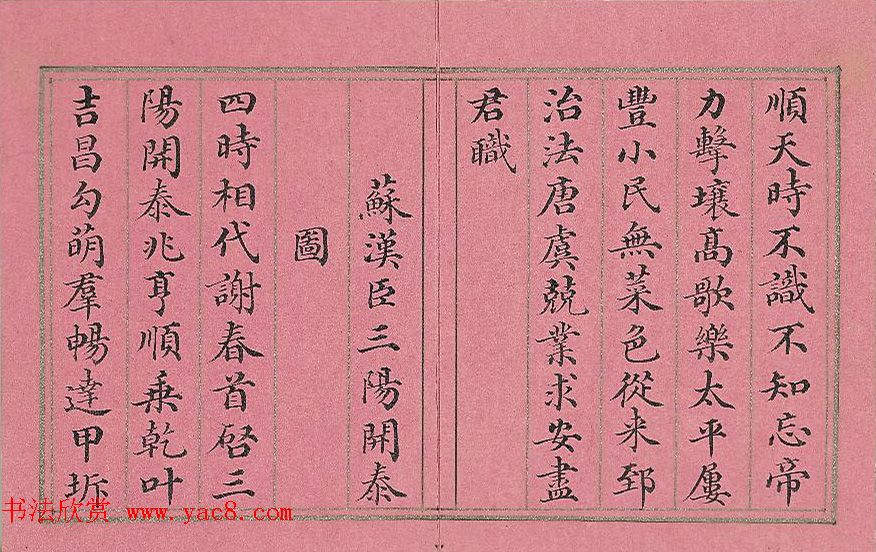 順天時不識不知忘帝
力擊壤高歌樂太平屢
豐小民無菜色從来郅
治法唐虞兢業求安盡
君職
蘇漢臣三陽開泰
圖
四時相代謝春首啓三
陽開泰兆亨順乗乾叶
吉昌勾萌羣暢達甲坼
书法欣赏 www.yac8.com